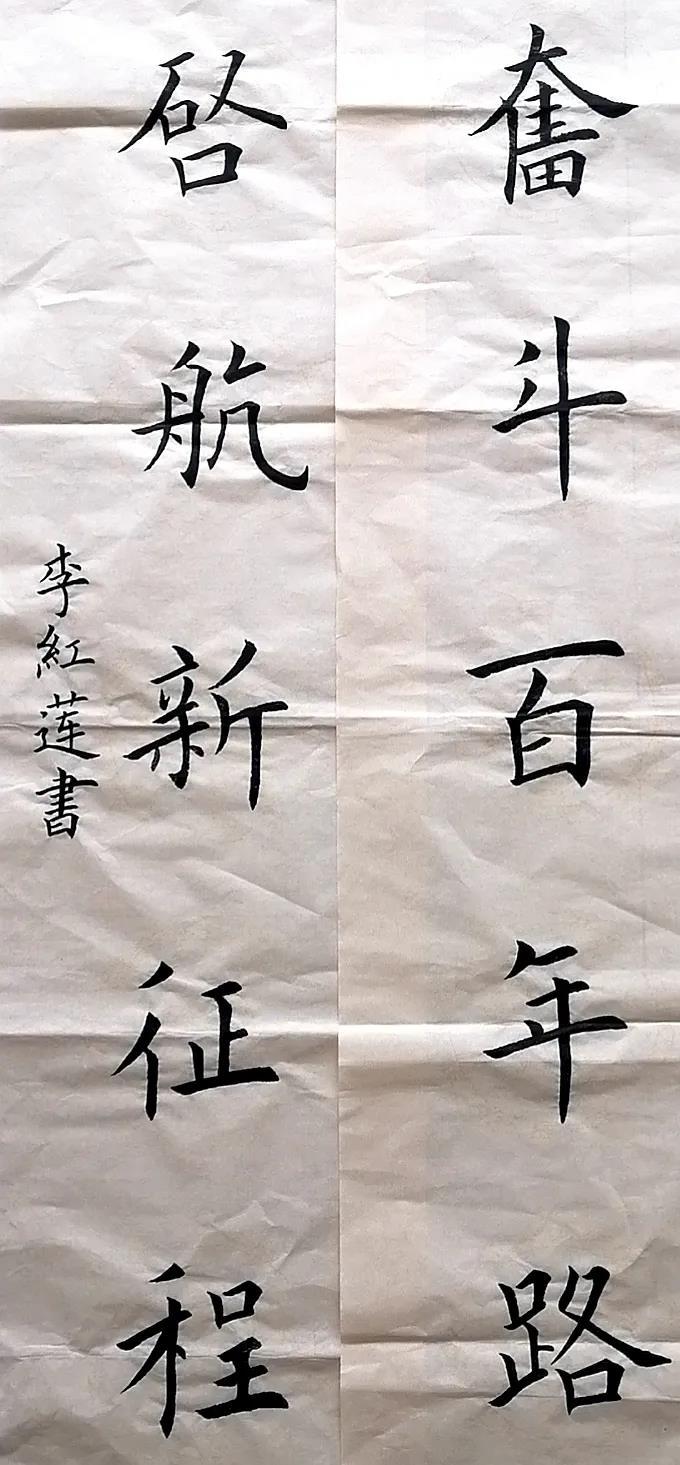 奮斗百年路
啓航新征程
李紅莲書